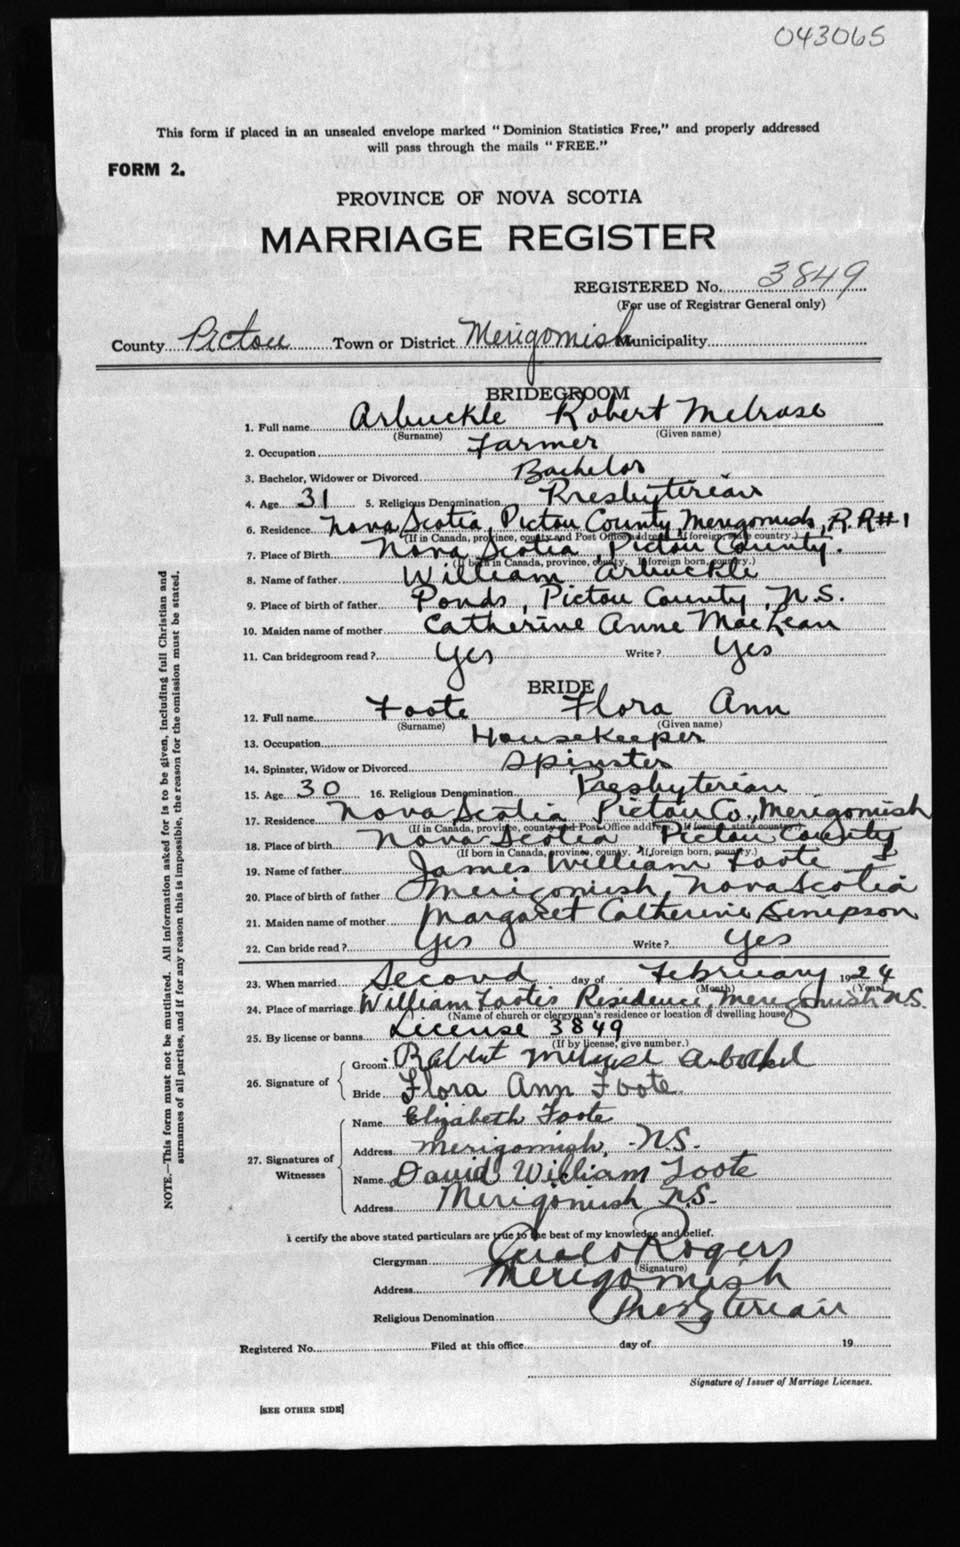 043065
This form if placed in an unsealed envelope marked "Dominion Statistics Free," and properly addressed
will pass through the mails "FREE."
FORM 2.
PROVINCE OF NOVA SCOTIA
MARRIAGE REGISTER
REGISTERED No. 3849
(For use of Registrar General only)
County Pictou Town or District Merigomish Municipality
BRIDEGROOM
1. Full name Arbuckle Robert Melrose
(Surname) (Given name)
2. Occupation Farmer
3. Bachelor, Widower or Divorced Bachelor
4. Age 31 5. Religious Denomination Presbyterian
6. Residence Nova Scotia, Pictou County, Merigomish, R.R#1
(If in Canada, province, county and Post Office address. If foreign, state country.)
7. Place of Birth Nova Scotia, Pictou County.
(If born in Canada, province, county. If foreign born, country.)
8. Name of father William Arbuckle
9. Place of birth of father Ponds, Pictou County, N.S.
10. Maiden name of mother Catherine Anne MacLean
11. Can bridegroom read? Yes Write? Yes
BRIDE
12. Full name Foote Flora Ann
(Surname) (Given name)
13. Occupation Housekeeper
14. Spinster, Widow or Divorced Spinster
15. Age 30 16. Religious Denomination Presbyterian
17. Residence Nova Scotia Pictou Co., Merigomish
(If in Canada, province, county and Post Office address. If foreign state country.)
18. Place of birth Nova Scotia Pictou County
(If born in Canada, province, county. If foreign born, country.)
19. Name of father James William Foote
20. Place of birth of father Merigomish, Nova Scotia
21. Maiden name of mother Margaret Catherine Simpson
22. Can bride read? Yes Write? Yes
23. When married Second day of February 1924
(Month) (Year)
24. Place of marriage William Foote's Residence, Merigomish N.S.
(Name of church or clergyman's residence or location of dwelling house)
25. By license or banns License 3849
(If by license, give number.)
26. Signature of Groom Melrose
Bride Flora Ann Foote
27. Signatures of Witnesses Name Elizabeth Foote
Address Merigomish, N.S.
Name David William Foote
Address Merigomish N.S.
I certify the above stated particulars are true to the best of my knowledge and belief.
Clergyman Rogers
(Signature)
Address Merigomish
Religious Denomination Presbyterian
Registered No. Filed at this office day of 19
Signature of Issuer of Marriage Licenses.
[SEE OTHER SIDE]
NOTE.—This form must not be mutilated. All information asked for is to be given, including full Christian and
surnames of all parties, and if for any reason this is impossible, the reason for the omission must be stated.